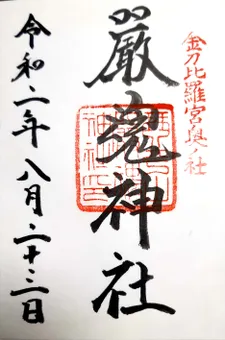 金刀比羅宮奥ノ社
嚴魂神社
令和二年八月二十三日